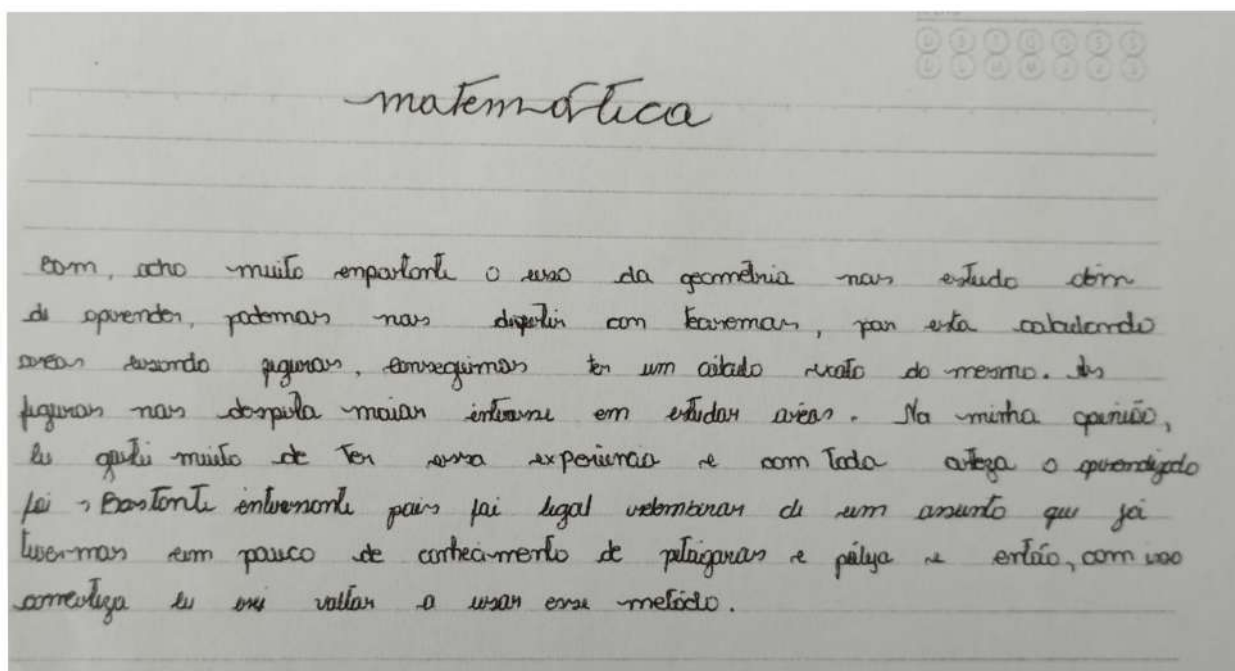 matemática
bom, acho muito emportante o uso da geometria nos estudo além
de aprender, podemos nos divertir com teoremas, por esta calculando
areas usando figuras, conseguimos ter um calculo exato do mesmo. As
figuras nos desperta maior interesse em estudar areas. Na minha opinião,
eu gostei muito de ter essa experiencia e com toda certeza o aprendizado
foi Bastante interesante pois foi legal relembrar de um assunto que já
tivermos um pouco de conhecimento de pitágoras e pólya e então, com
com certeza eu irei voltar a usar esse metódo.